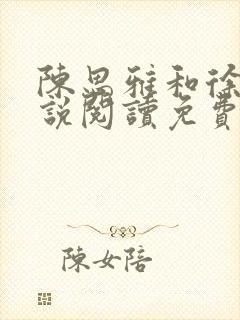 陳思雅和徐
說閱讀免費
陳女陪